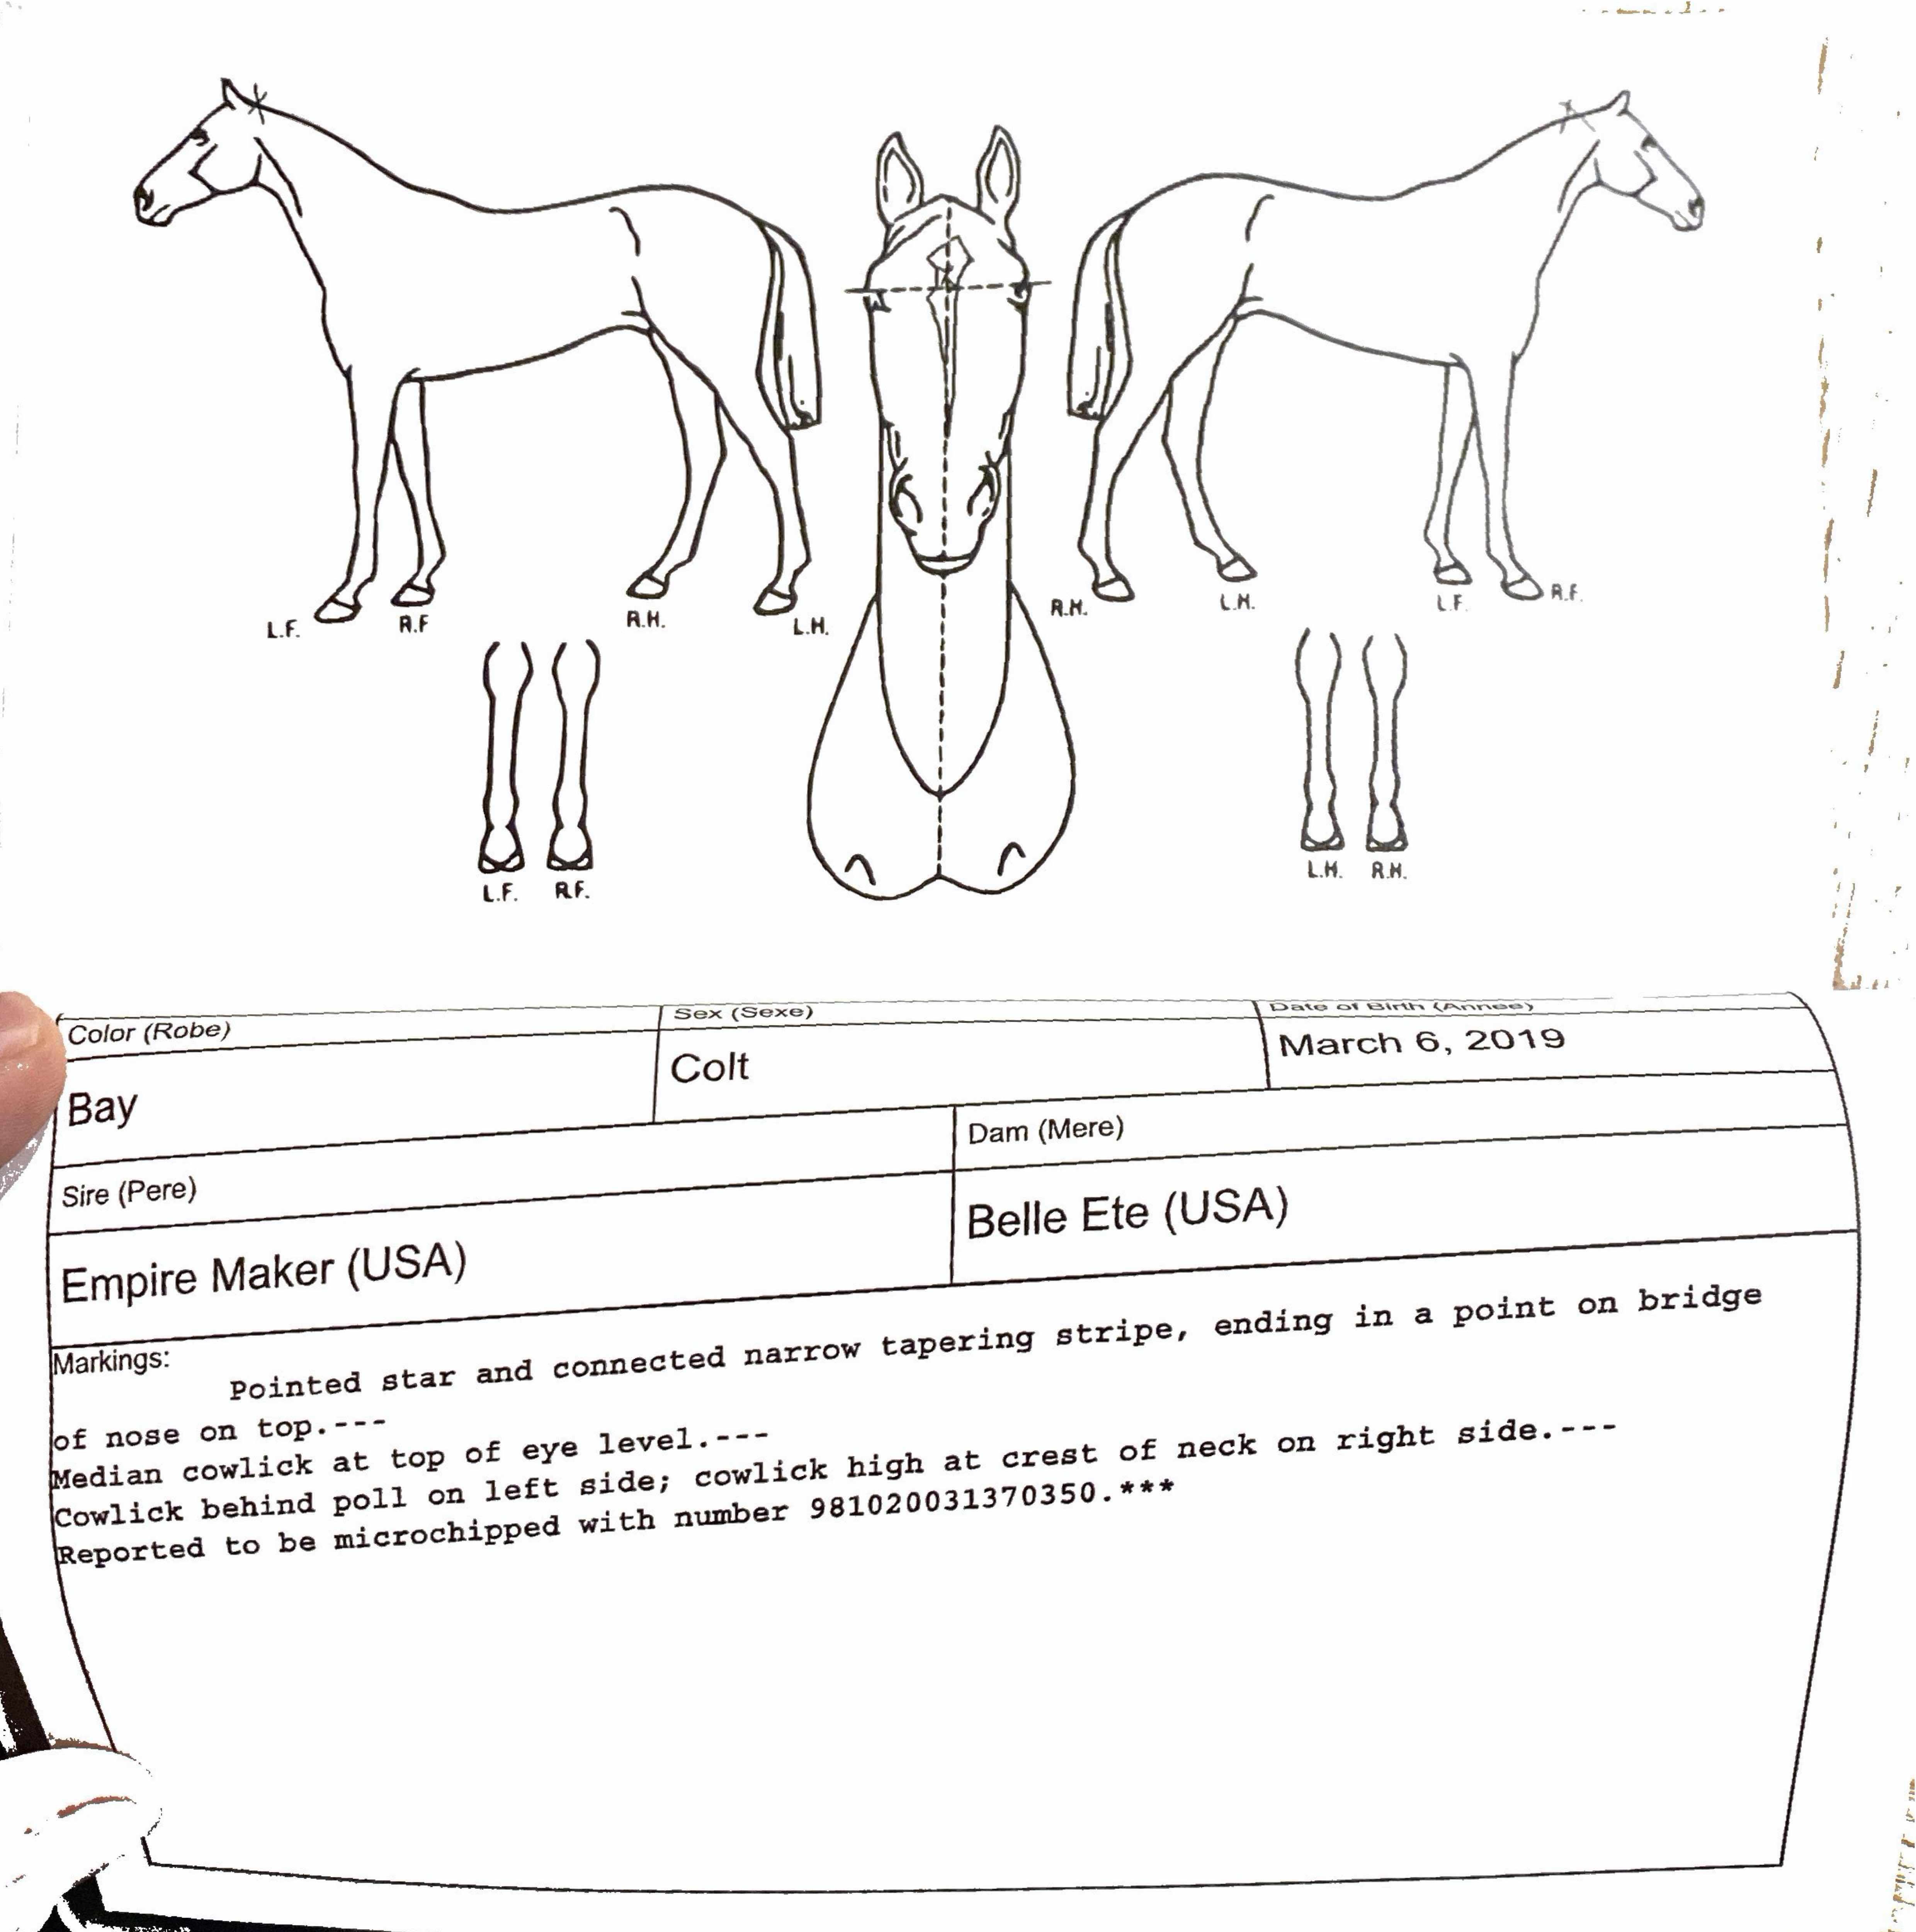 L.F.
R.F
R.H.
L.H.
R.H.
L.H.
L.F.
R.F.
L.F.
R.F.
L.H.
R.H.
Color (Robe)
Sex (Sexe)
Date of Birth (Annee)
Bay
Colt
March 6, 2019
Sire (Pere)
Dam (Mere)
Empire Maker (USA)
Belle Ete (USA)
Markings:
Pointed star and connected narrow tapering stripe, ending in a point on bridge
of nose on top.---
Median cowlick at top of eye level.---
Cowlick behind poll on left side; cowlick high at crest of neck on right side.---
Reported to be microchipped with number 981020031370350.***